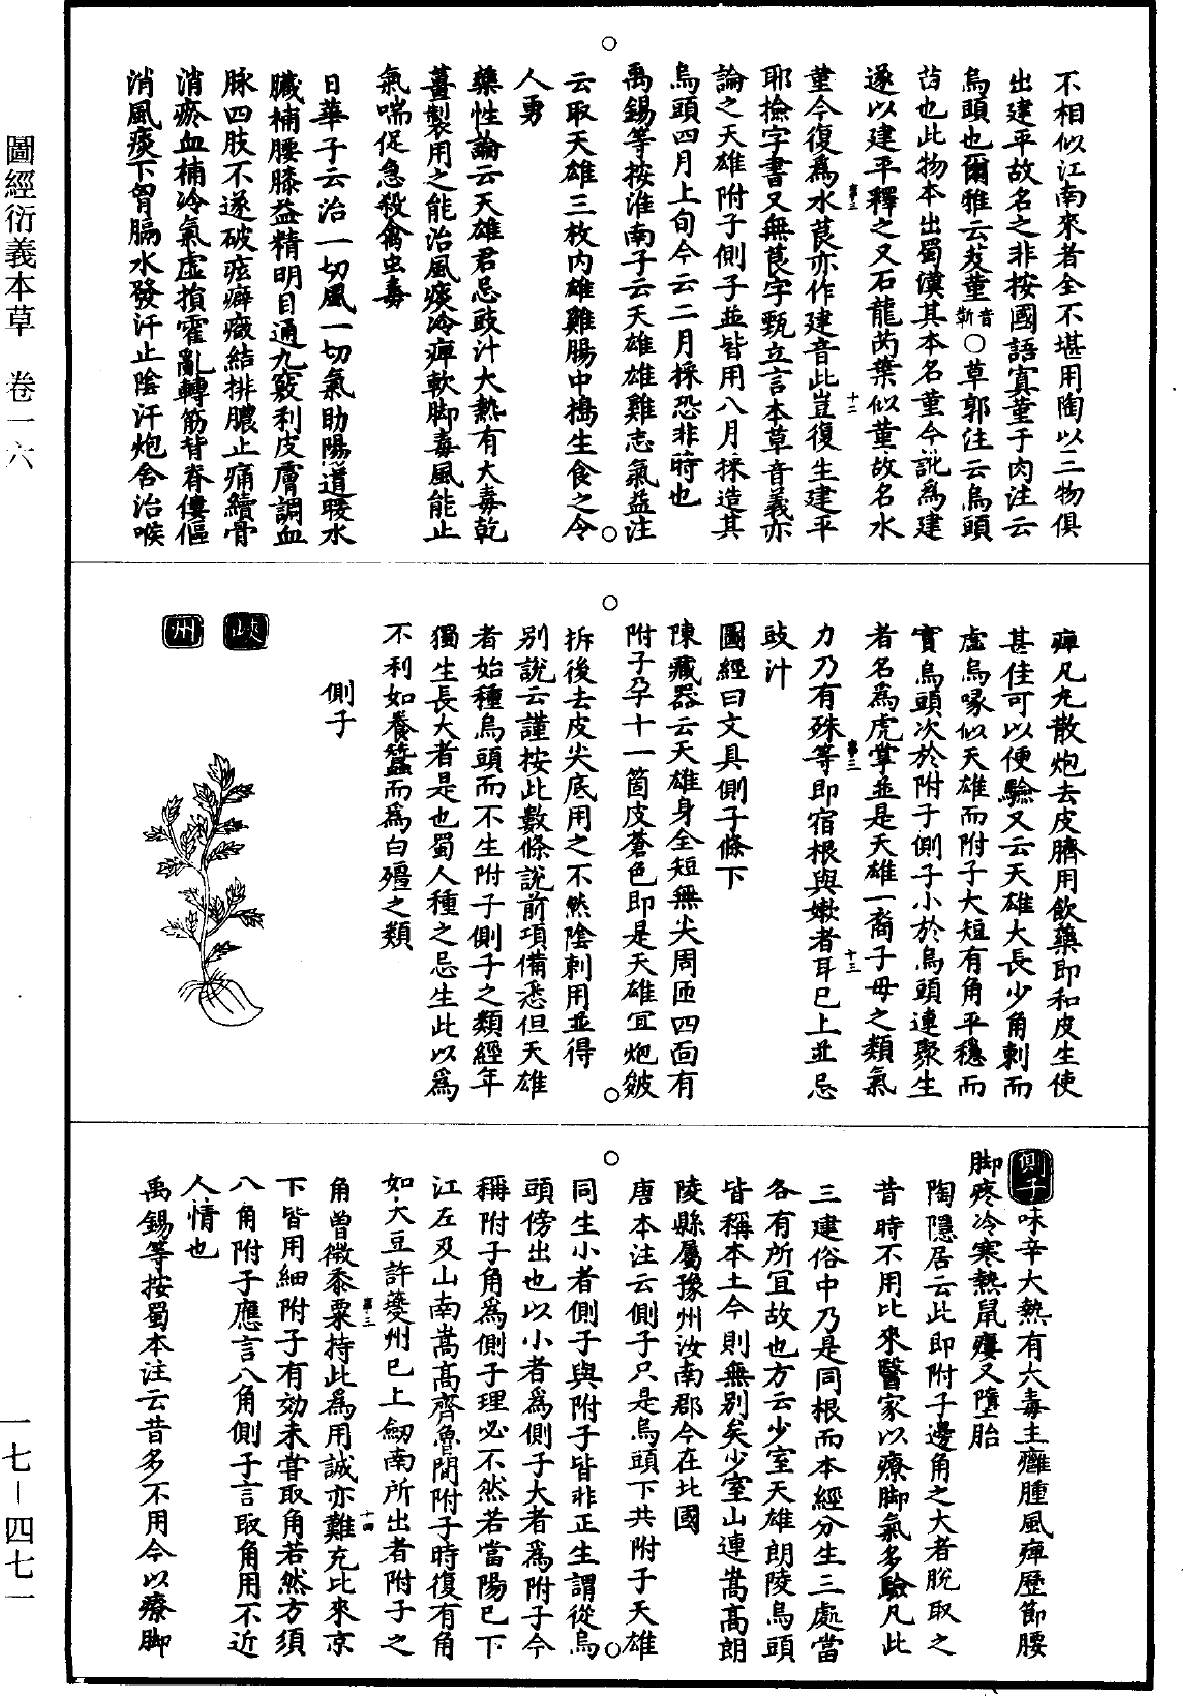 圖經衍義本草 卷一六
不相似江南來者全不堪用陶以三物俱
出建平故名之非按國語寘堇于肉注云
烏頭也爾雅云芨堇音靳○草郭注云烏頭
苗也此物本出蜀漢其本名堇今訛爲建
遂以建平釋之又石龍芮葉似堇故名水
堇今復爲水莨亦作建音此豈復生建平
耶撿字書又無莨字甄立言本草音義亦
論之天雄附子側子並皆用八月採造其
烏頭四月上旬今云二月採恐非時也
禹錫等按淮南子云天雄雄雞志氣益注
云取天雄三枚内雄雞腸中搗生食之令
人勇
藥性論云天雄君忌豉汁大熱有大毒乾
薑製用之能治風痰冷痺軟脚毒風能止
氣喘促急殺禽虫毒
日華子云治一切風一切氣助陽道暖水
臟補腰膝益精明目通九竅利皮膚調血
脉四肢不遂破痃癖癥結排膿止痛續骨
消瘀血補冷氣虛損霍亂轉筋背脊僂傴
消風痰下胷膈水發汗止陰汗炮含治喉
痺凡丸散炮去皮臍用飲藥即和皮生使
甚佳可以便驗又云天雄大長少角刺而
虛烏喙似天雄而附子大短有角平穩而
實烏頭次於附子側子小於烏頭連聚生
者名爲虎掌並是天雄一裔子母之類氣
力乃有殊等即宿根與嫩者耳已上並忌
豉汁
圖經曰文具側子條下
陳藏器云天雄身全短無尖周匝四面有
附子孕十一箇皮蒼色即是天雄宜炮皴
拆後去皮尖底用之不然陰刺用並得
别說云謹按此數條說前項備悉但天雄
者始種烏頭而不生附子側子之類經年
獨生長大者是也蜀人種之忌生此以爲
不利如養蠶而爲白殭之類
側子
峽州
側子味辛大熱有大毒主癰腫風痺歷節腰
脚疼冷寒熱鼠瘻又墮胎
陶隱居云此即附子邊角之大者脫取之
昔時不用比來醫家以療脚氣多驗凡此
三建俗中乃是同根而本經分生三處當
各有所宜故也方云少室天雄朗陵烏頭
皆稱本土今則無别矣少室山連嵩高朗
陵縣屬豫州汝南郡今在北國
唐本注云側子只是烏頭下共附子天雄
同生小者側子與附子皆非正生謂從烏
頭傍出也以小者爲側子大者爲附子今
稱附子角爲側子理必不然若當陽已下
江左及山南嵩高齊魯間附子時復有角
如大豆許夔州已上劒南所出者附子之
角曾微黍粟持此爲用誠亦難充比來京
下皆用細附子有効未嘗取角若然方須
八角附子應言八角側子言取角用不近
人情也
禹錫等按蜀本注云昔多不用今以療脚
一七－四七一